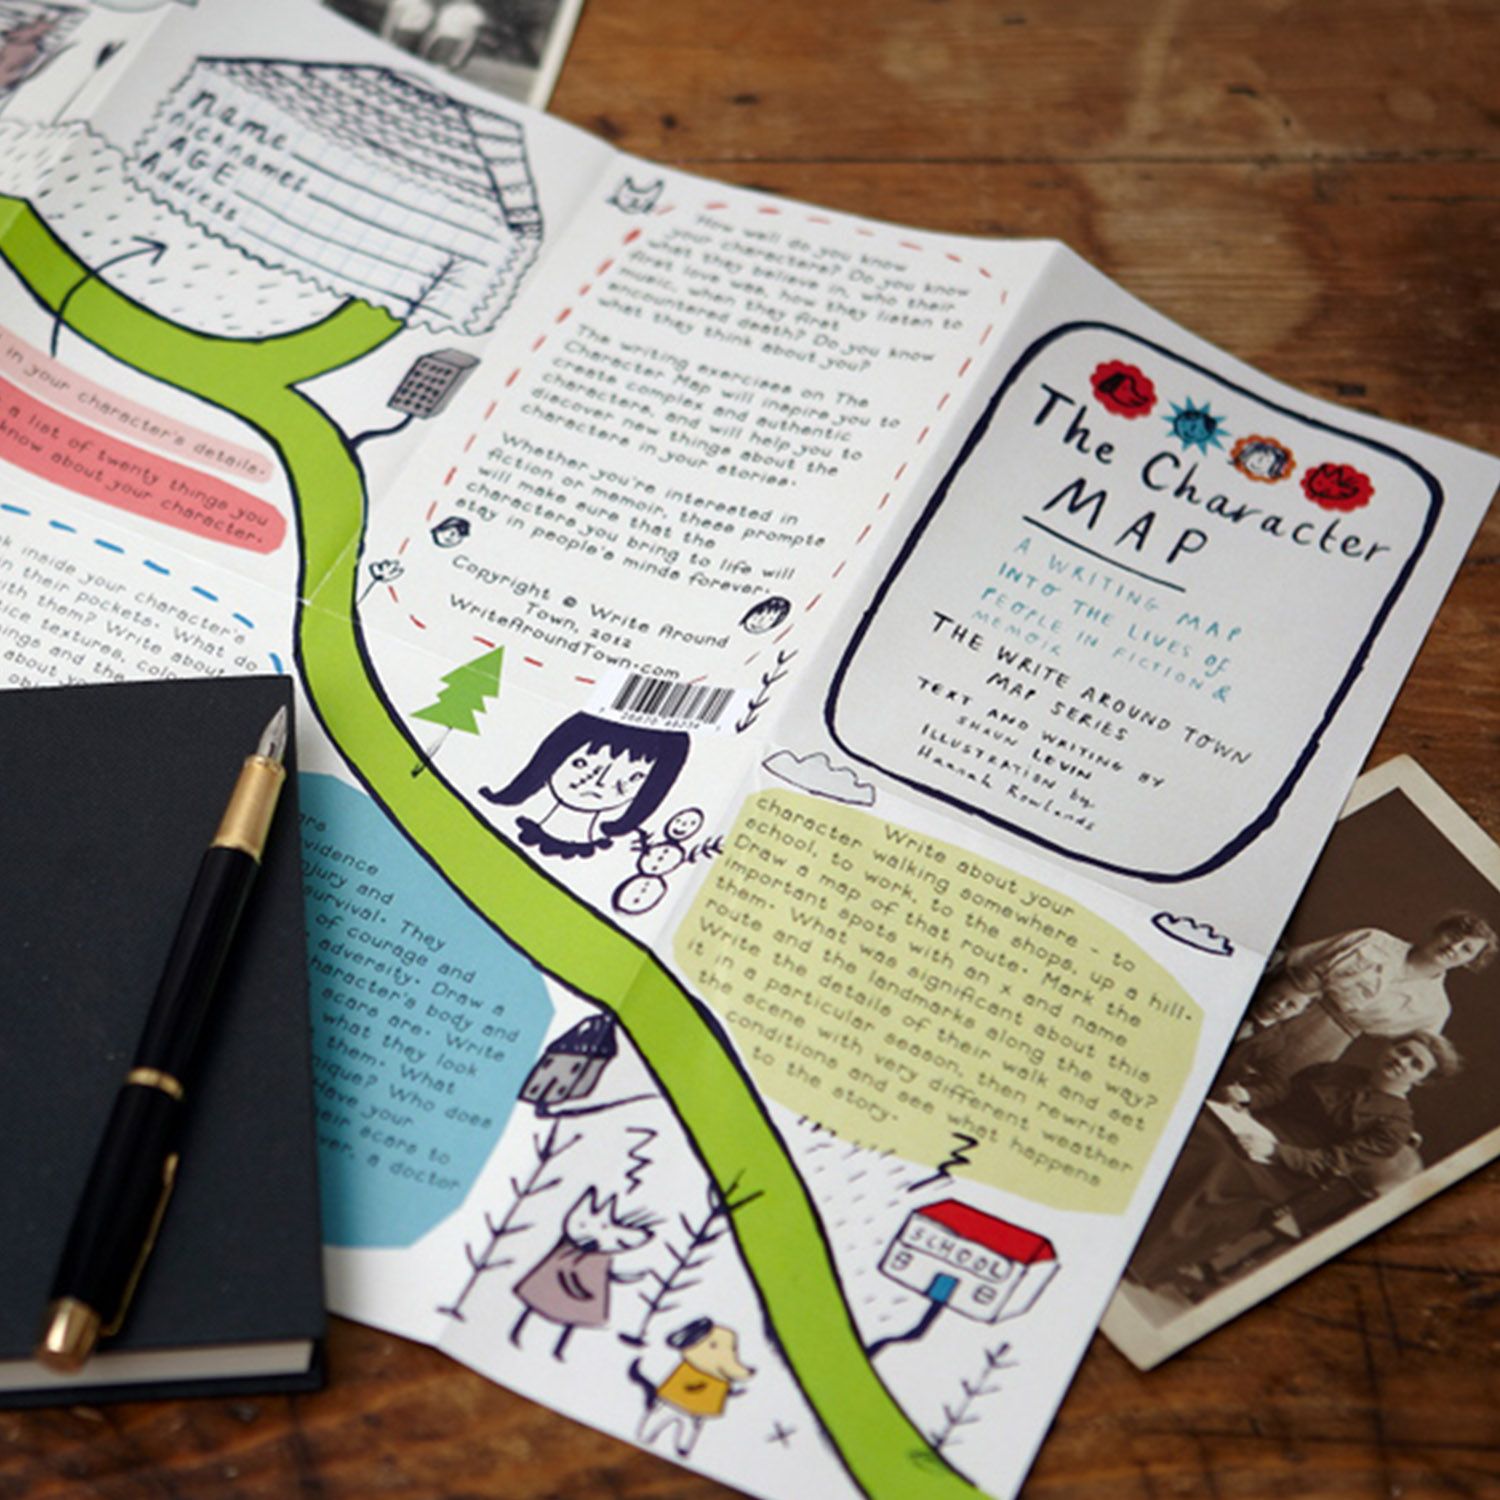 name
nicknames
AGE
Address
in your character's details.
a list of twenty things you
know about your character.
inside your character's
in their pockets. What do
with them? Write about
textures, 
and the
about
How well do you know
your characters? Do you know
what they believe in, who their
first love was, how they listen to
music, when they first
encountered death? Do you know
what they think about you?
The writing exercises on The
Character Map will inspire you to
create complex and authentic
characters, and will help you to
discover new things about the
characters in your stories.
Whether you're interested in
fiction or memoir, these prompts
will make sure that the
characters you bring to life will
stay in people's minds forever.
Copyright © Write Around
Town, 2012
WriteAroundTown.com
The Character
MAP
A WRITING MAP
INTO THE LIVES OF
PEOPLE IN FICTION &
MEMOIR
THE WRITE AROUND TOWN
MAP SERIES
TEXT AND WRITING BY
SHAUN LEVIN
ILLUSTRATION by
Hannah Rowlands
evidence
injury and
survival. They
of courage and
adversity. Draw a
character's body and
scars are. Write
what they look
them. What
Who does
Have your
scars to
a doctor
Write about your
character walking somewhere - to
school, to work, to the shops, up a hill.
Draw a map of that route. Mark the
important spots with an x and name
them. What was significant about this
route and the landmarks along the way?
Write the details of their walk and set
it in a particular season, then rewrite
the scene with very different weather
conditions and see what happens
to the story.
SCHOOL